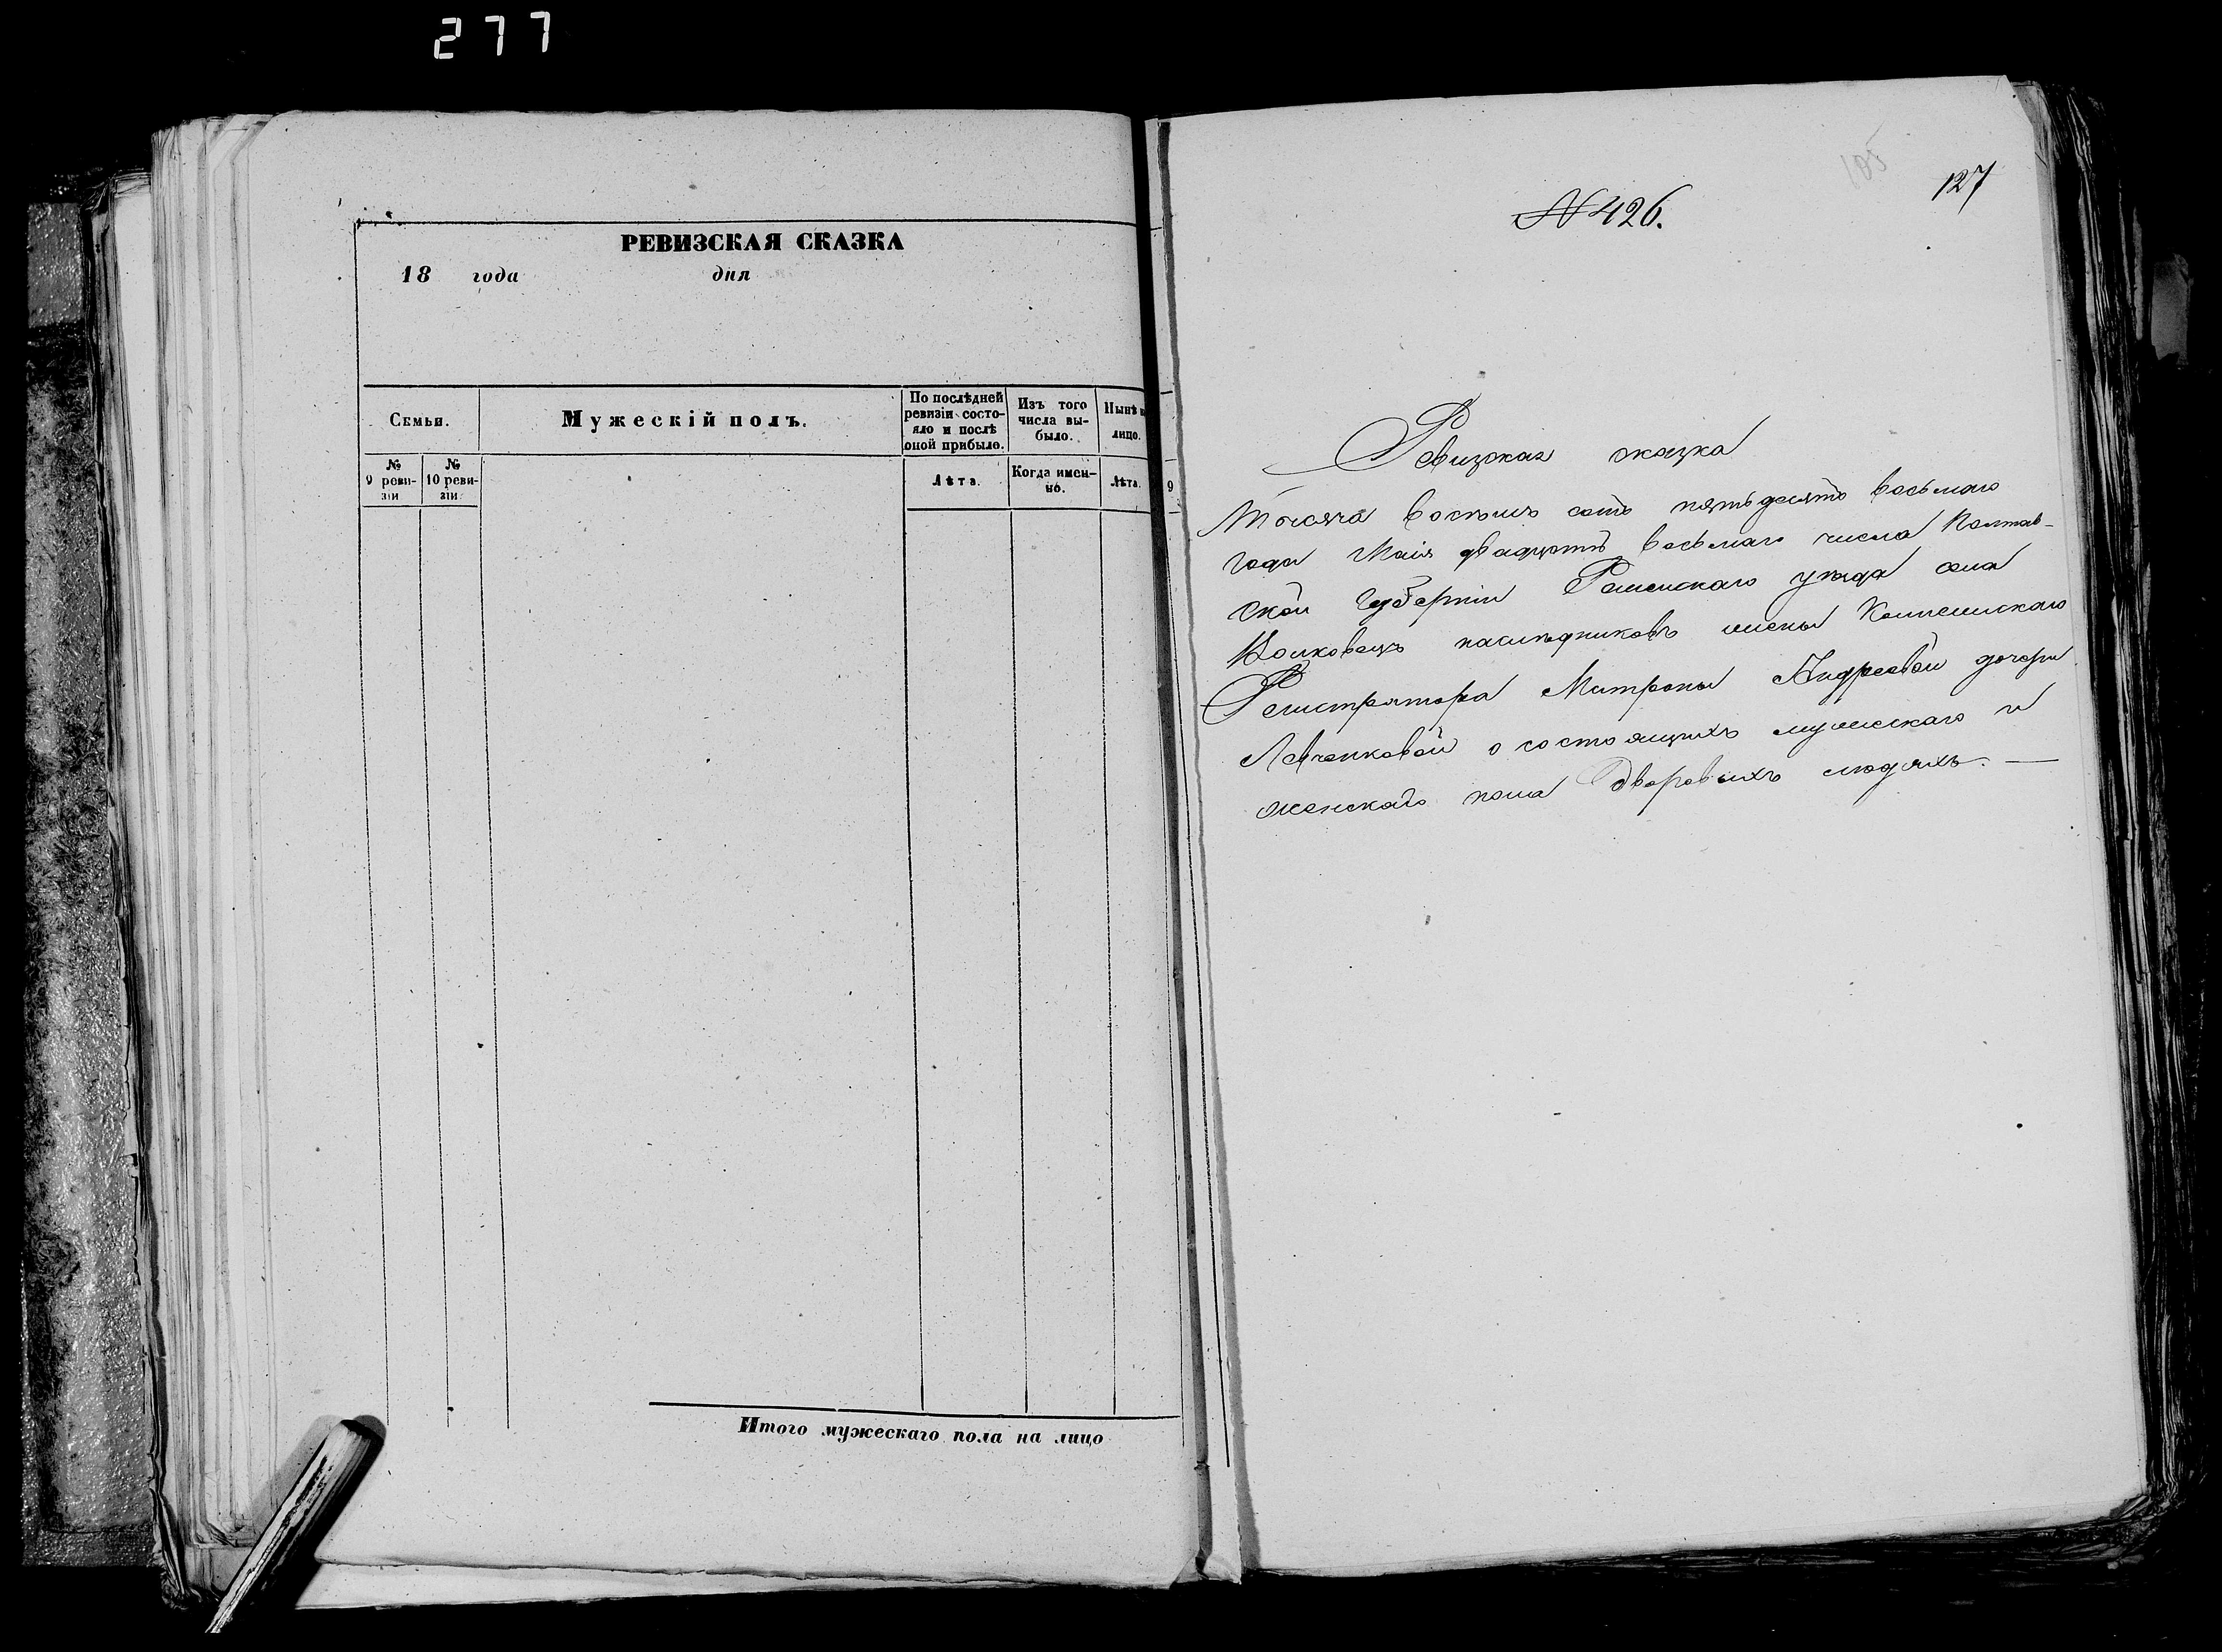 277
РЕВИЗСКАЯ СКАЗКА
18 года дня
Семьи.
Мужескій полъ.
По послѣдней
ревизіи состо-
яло и послѣ
оной прибыло.
Изъ того
числа вы-
было.
Нынѣ
лицо.
№
9 реви-
зіи
№
10 реви-
зіи
Лѣта.
Когда имен-
но.
Лѣта.
9
Итого мужескаго пола на лицо
105
127
№ 426.
Ревизская сказка
Тысяча восемь сотъ пятьдесятъ восьмаго
года Маія двадцать восьмаго числа Полтав-
ской Губерніи Роменскаго уѣзда села
Волковецъ наслѣдниковъ жены Колежскаго
Регистратора Матроны Андреевой дочери
Левченковой о состоящихъ мужескаго и
женскаго пола дворовыхъ людяхъ. —